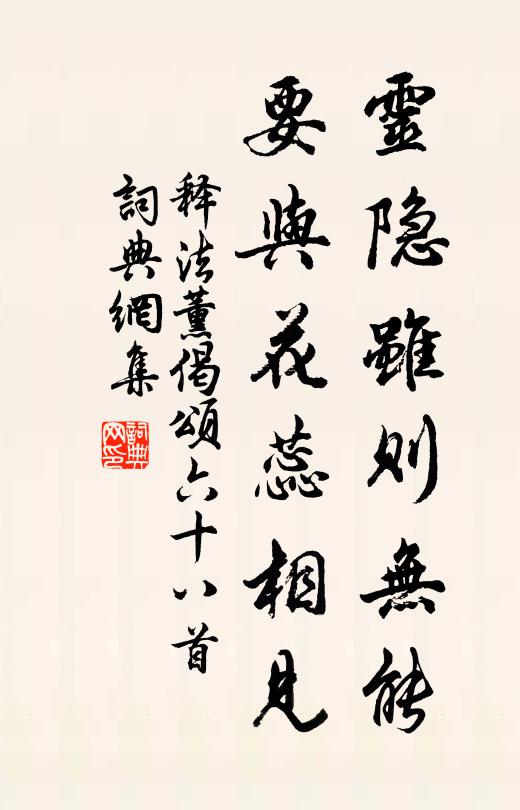 靈隐雖则無能
要與花蕊相見
释法薰偈頌六十八首
詞典網集
詞典
网印